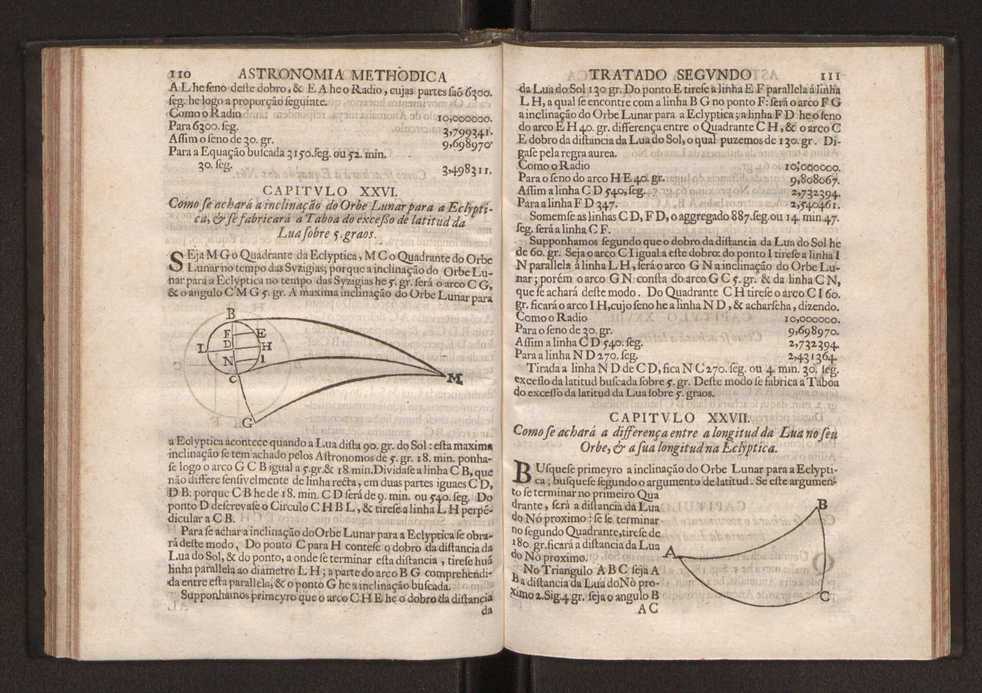 110 ASTRONOMIA METHODICA
A L he seno deste dobro, & E A he o Radio, cujas partes saõ 6300.
seg. he logo a proporção seguinte.
Como o Radio 10,000000.
Para 6300. seg. 3,799341.
Assim o seno de 30. gr. 9,698970
Para a Equação buscada 3150. seg. ou 52. min.
30. seg. 3,498311.
CAPITVLO XXVI.
Como se achará a inclinação do Orbe Lunar para a Eclypti-
ca, & se fabricará a Taboa do excesso de latitud da
Lua sobre 5. graos.
SEja M G o Quadrante da Eclyptica, M C o Quadrante do Orbe
Lunar no tempo das Syzigias; porque a inclinação do Orbe Lu-
nar para a Eclyptica no tempo das Syzigias he 5. gr. será o arco C G,
& o angulo C M G 5. gr. A maxima inclinação do Orbe Lunar para
B
F E
L D H
N I
C
M
G
a Eclyptica acontece quando a Lua dista 90. gr. do Sol: esta maxima
inclinação se tem achado pelos Astronomos de 5. gr. 18. min. ponha-
se logo o arco G C B igual a 5. gr. & 18 min. Divida se a linha C B, que
não differe sensivelmente de linha recta, em duas partes iguaes C D,
D B. porque C B he de 18. min. C D será de 9. min. ou 540. seg. Do
ponto D descrevase o Circulo C H B L, & tirese a linha L H perpẽ-
dicular a C B.
Para se achar a inclinação do Orbe Lunar para a Eclyptica se obra-
rá deste modo. Do ponto C para H contese o dobro da distancia da
Lua do Sol, & do ponto, a onde se terminar esta distancia, tirese huã
linha parallela ao diametro L H; a parte do arco B G comprehendi-
da entre esta parallela, & o ponto G he a inclinação buscada.
Supponhamos primeyro que o arco C H E he o dobro da distancia
da
TRATADO SEGVNDO 111
da Lua do Sol 130 gr. Do ponto E tirese a linha E F parallela á linha
L H, a qual se encontre com a linha B G no ponto F: será o arco F G
a inclinação do Orbe Lunar para a Eclyptica; a linha F D he o seno
do arco E H 40. gr. differença entre o Quadrante C H, & o arco C
E dobro da distancia da Lua do Sol, o qual puzemos de 130. gr. Di-
gase pela regra aurea.
Como o Radio 10,000000.
Para o seno do arco H E 40. gr. 9,808067.
Assim a linha C D 540, seg. 2,732394.
Para a linha F D 347. 2,540461.
Somemse as linhas C D, F D, o aggregado 887. seg. ou 14. min 47.
seg. será a linha C F.
Supponhamos segundo que o dobro da distancia da Lua do Sol he
de 60. gr. Seja o arco C I igual a este dobro: do ponto I tirese a linha I
N parallela á linha L H, será o arco G N a inclinação do Orbe Lu-
nar; porém o arco G N consta do arco G C 5. gr. & da linha C N,
que se achará deste modo. Do Quadrante C H tirese o arco C I 60.
gr. ficará o arco I H, cujo seno he a linha N D, & acharseha, dizendo.
Como o Radio 10,000000.
Para o seno de 30. gr. 9,698970.
Assim a linha C D 540. seg. 2,732394.
Para a linha N D 270. seg. 2,431364.
Tirada a linha N D de C D, fica N C 270. seg. ou 4. min. 30. seg.
excesso da latitud buscada sobre 5. gr. Deste modo se fabrica a Taboa
do excesso da latitud da Lua sobre 5. graos.
CAPITVLO XXVII.
Como se achará a differença entre a longitud da Lua no seu
Orbe, & a sua longitud na Eclyptica.
BUsquese primeyro a inclinação do Orbe Lunar para a Eclypti-
ca; busquese segundo o argumento de latitud. Se este argumen-
to se terminar no primeiro Qua
drante, será a distancia da Lua
do Nó proximo: se se terminar
no segundo Quadrante, tirese de
180 gr. ficará a distancia da Lua
do Nó proximo.
No Triangulo A B C seja A
B a distancia da Lua do Nò pro-
ximo 2. Sig. 4 gr. seja o angulo B
A C
B
A
C